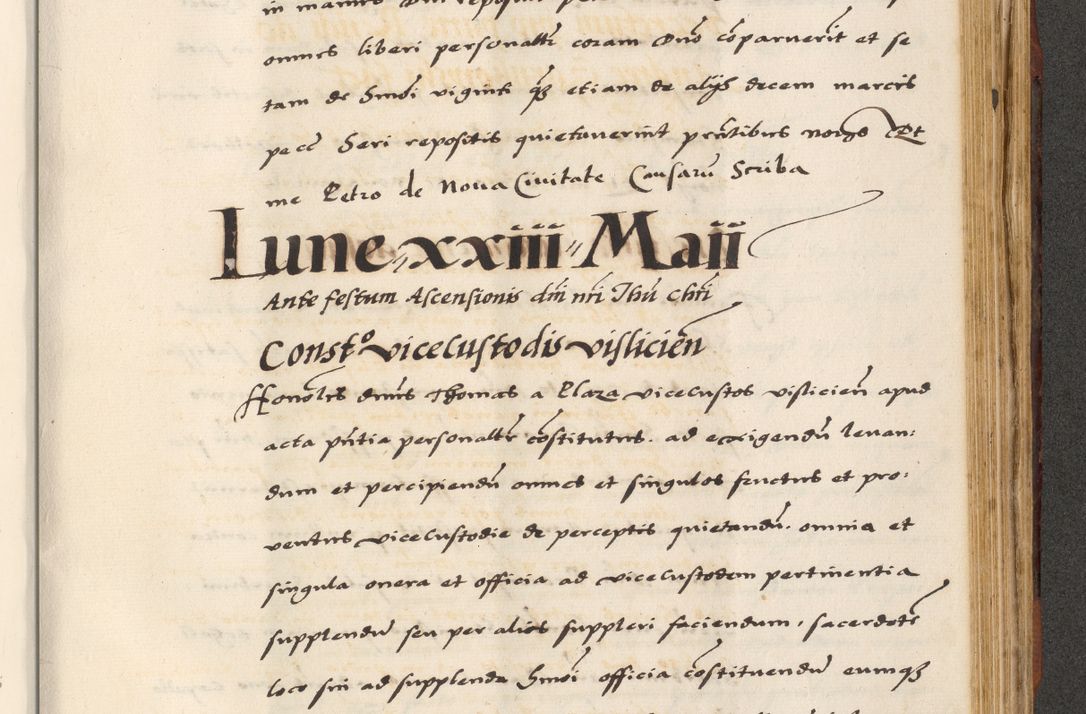 in manus Dni reposit
omnes liberi personaltr coram Dno cōparuerīt et se
tam de hmōi viginti q̄ etiam de alijs decem marcis
pecc heri repositis quietaverint pn̄tibus nobis Et
me Petro de Nova Civitate Causarū Scriba
Lune xxiiii Maij
Ante festum Ascensionis dn̄i nr̄i Ihū Chr̄i
Const° vicecustodis vislicien̄
Honorlis dn̄us Thomas a Plaza vicecustos vislicien̄ apud
acta pn̄tia personaltr cōstitutus. ad exigendū levan:
dum et percipiendū omnes et singulos fructus et pro:
ventus vicecustodie de perceptis quietandū. omnia et
singula onera et officia ad vicecustodem pertinentia
supplendū seu per alios suppleri faciendum, sacerdotē
loco sui ad supplenda hmōi officia cōstituendū eumqȝ